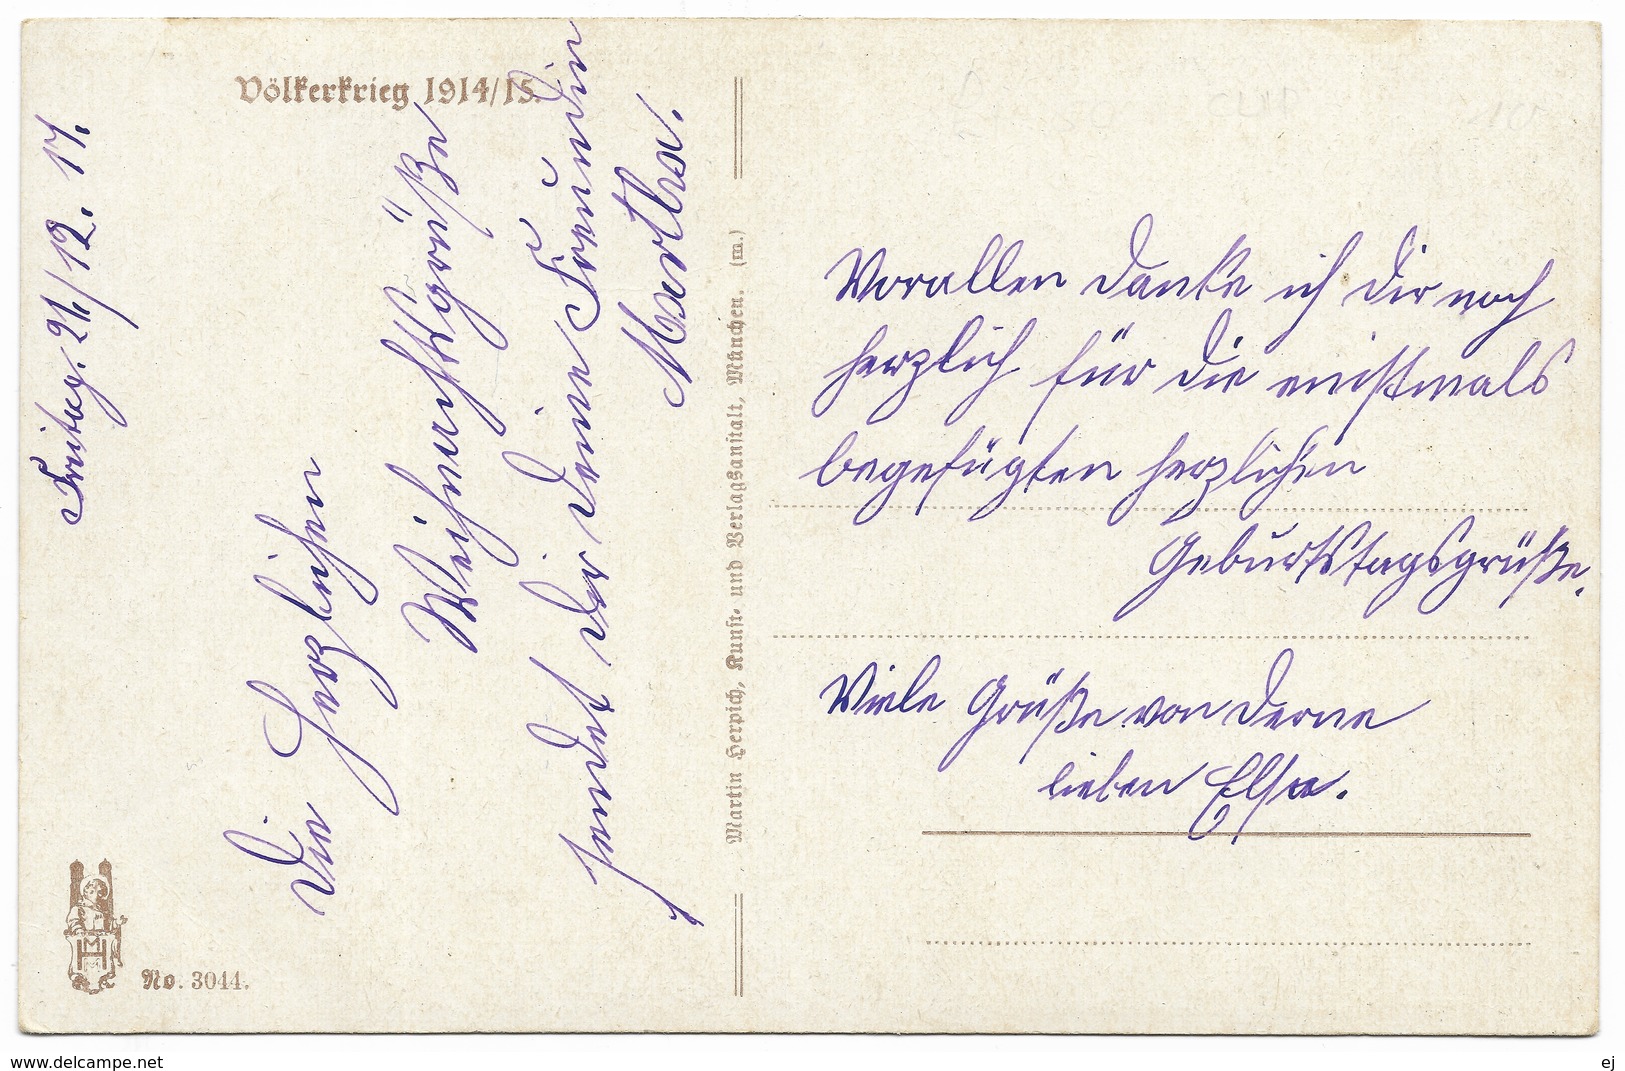 Völkerkrieg 1914/15.
Freitag. 21./12. 17.
Die Herzlichsten
Weihnachtsgrüße
sendet Dir Deine Freundin
Martha.
Martin Herpich, Kunst- und Verlagsanstalt, München. (m.)
Vorallen danke ich Dir noch
herzlich für die
begefügten herzlichen
Geburtstagsgrüße.
Viele Grüße von Deine
lieben Elsa.
MHM
No. 3044.
www.delcampe.net
ej